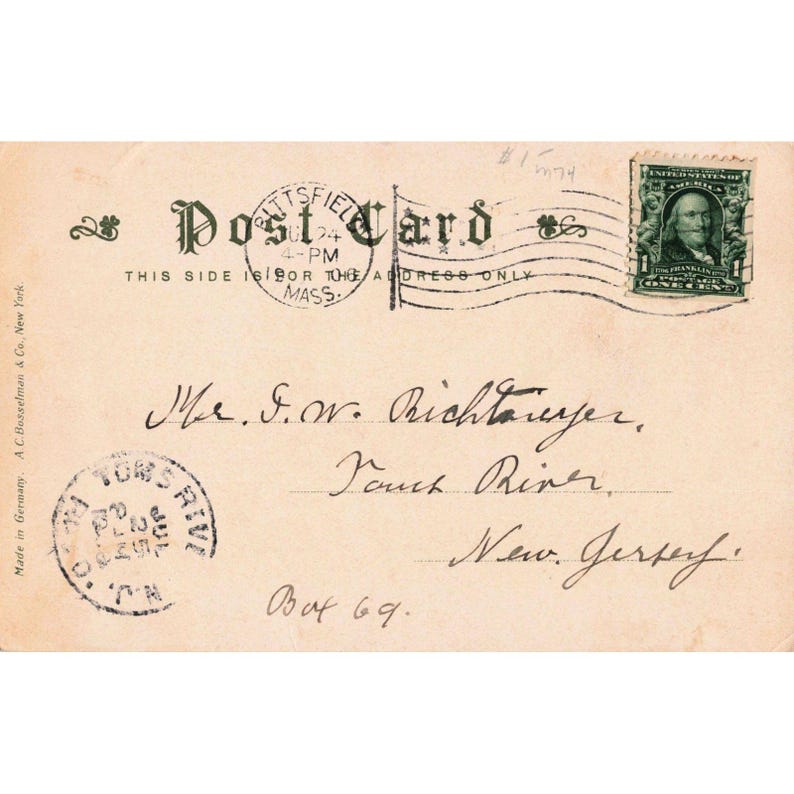 $1-
m74
Post Card
THIS SIDE IS FOR THE ADDRESS ONLY
PITTSFIELD
24
4-PM
19 06
MASS.
SERIES 1902
UNITED STATES OF
AMERICA
1 1706 FRANKLIN 1790 1
POSTAGE
ONE CENT
Made in Germany. A.C. Bosselman & Co., New York.
Mr.
Toms River,
New Jersey.
Box 69.
TOMS RIVER
REC'D.
N.J.